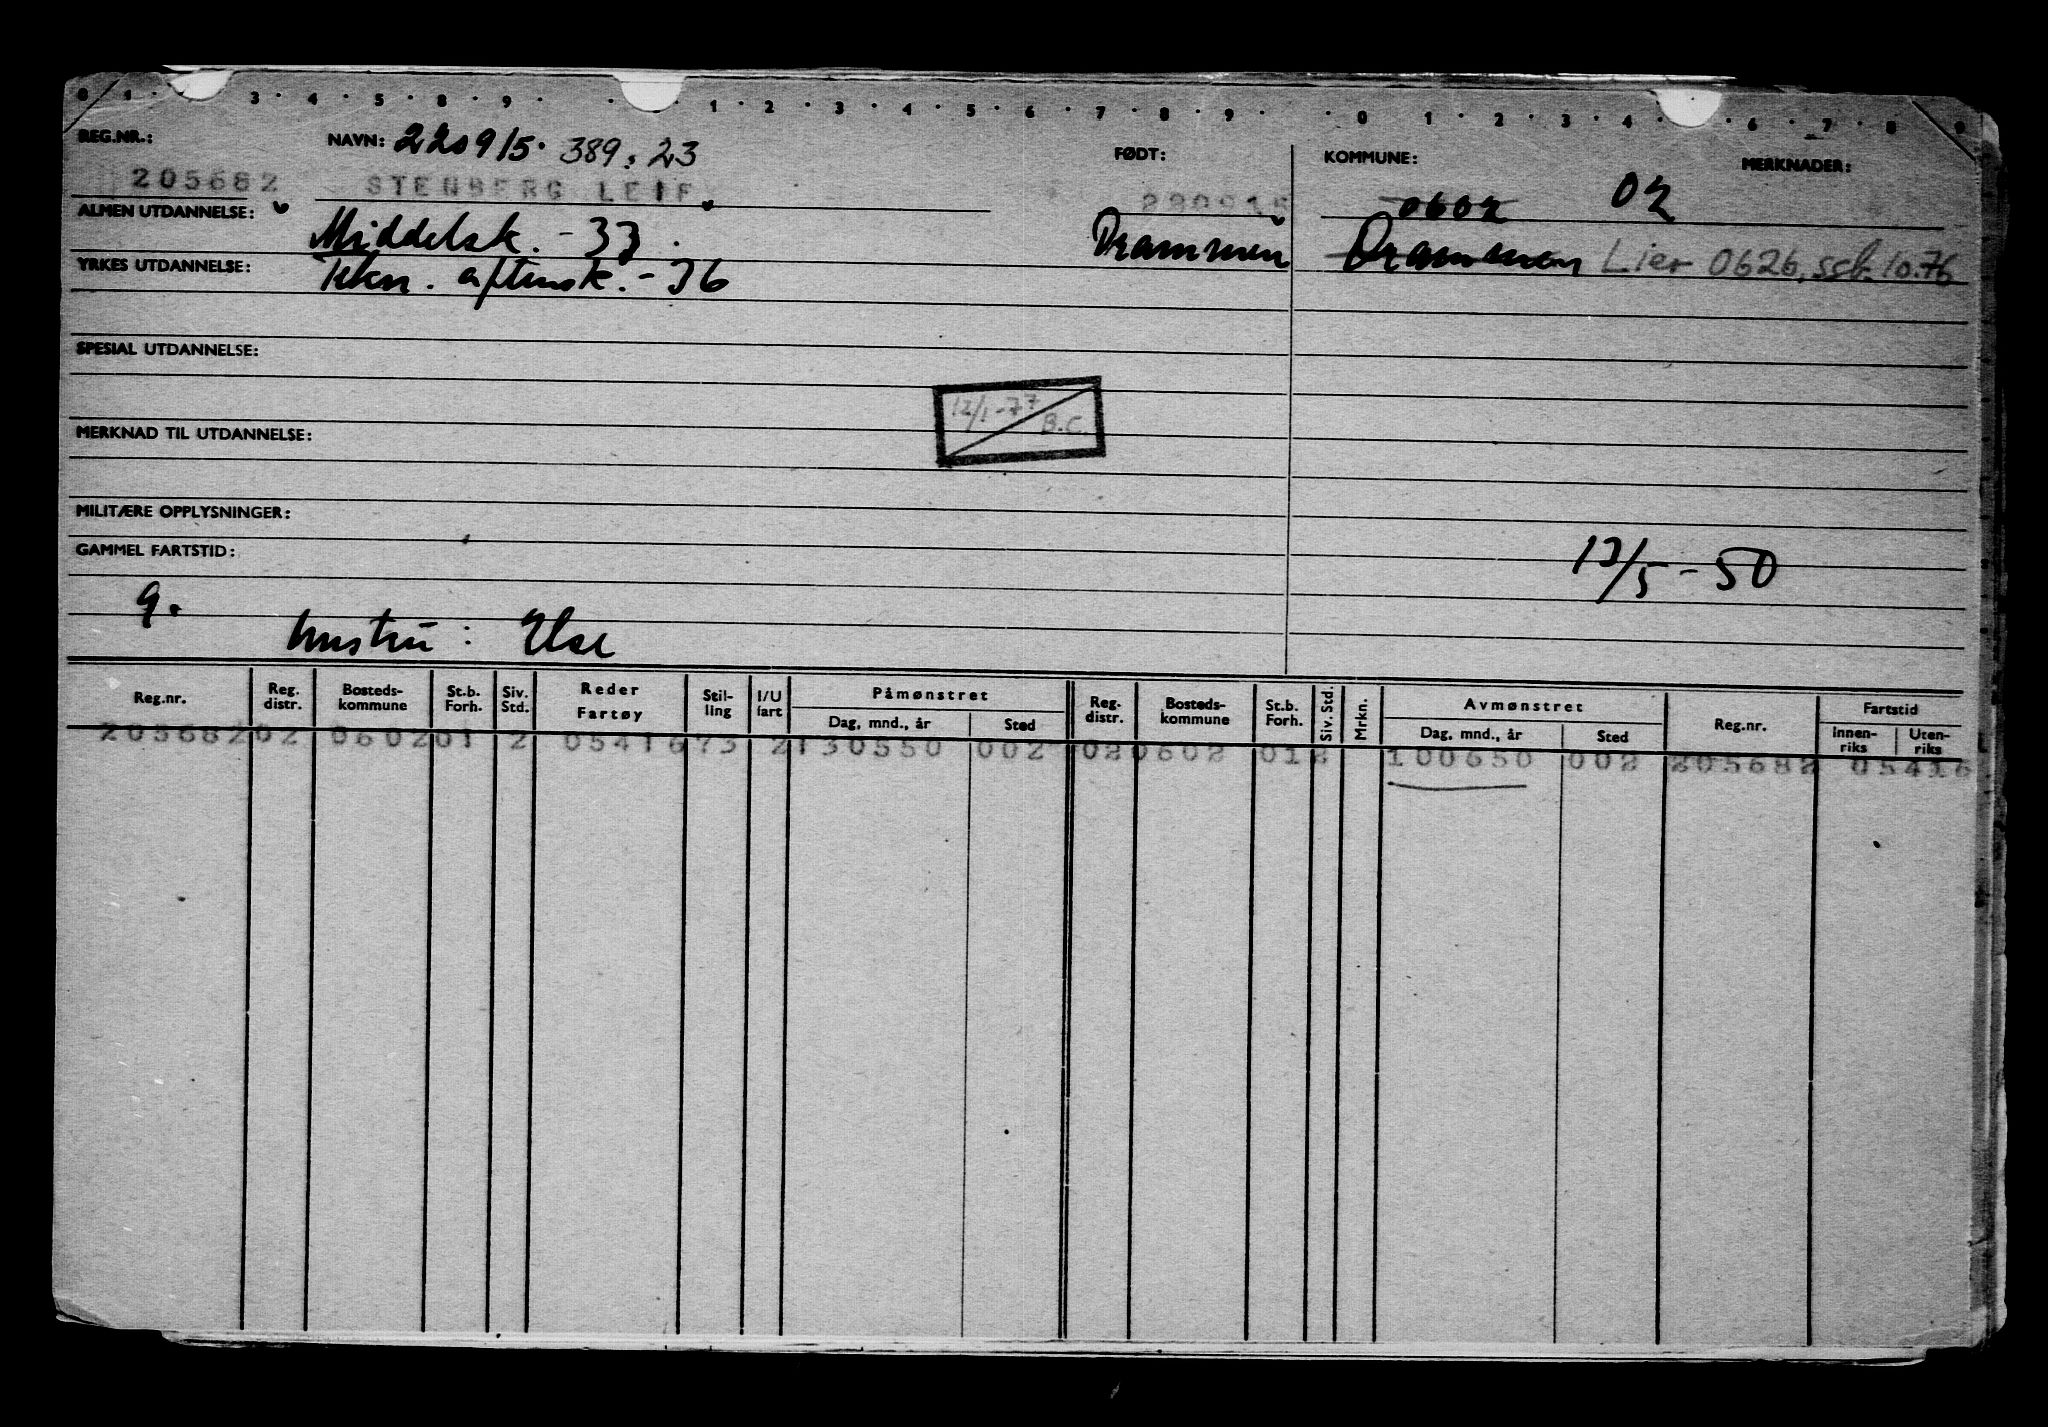 0 1 · 3 · 4 · 5 · 8 · 9 · · 1 · 2 · 3 · 4 · 5 · 6 · 7 · 8 · 9 · · 0 · 1 · 2 · 3 · 4 · 6 · 7 · 8 · 9
REG.NR.: NAVN: 220915. 389.23 FØDT: KOMMUNE: MERKNADER:
205682 STENBERG LEIF 0602 02
ALMEN UTDANNELSE: Middelsk. - 33. Drammen Drammen Lier 0626, ssb. 10.76
YRKES UTDANNELSE: Tekn. aftensk. - 36
SPESIAL UTDANNELSE:
12/1-77 B.C.
MERKNAD TIL UTDANNELSE:
MILITÆRE OPPLYSNINGER:
GAMMEL FARTSTID: 12/5 - 50
g.
hustru : Else
Reg.nr. Reg. distr. Bosteds-kommune St.b. Forh. Siv. Std. Reder Fartøy Stil-ling I/U fart Påmønstret Dag, mnd., år Sted Reg. distr. Bosteds-kommune St.b. Forh. Siv. Std. Mrkn. Avmønstret Dag, mnd., år Sted Reg.nr. Fartstid Innen-riks Uten-riks
205682 02 0602 01 2 05416 73 2 130550 002 02 0602 01 2 100650 002 205682 05416